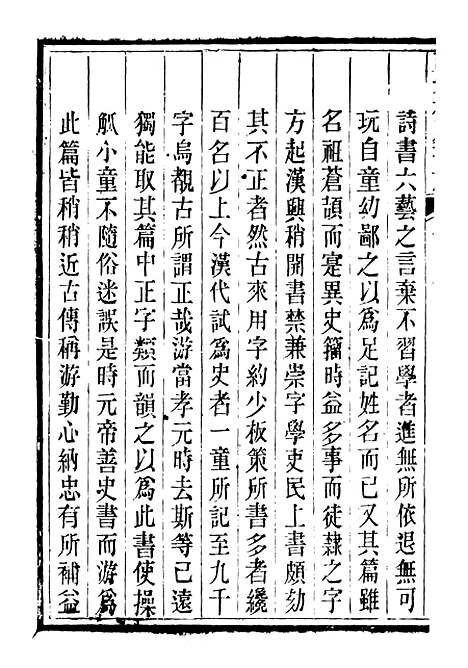 詩書六藝之言棄不習學者進無所依退無可
玩自童幼鄙之以爲足記姓名而已又其篇雖
名祖蒼頡而寔異史籒時益多事而徒隸之字
方起漢興稍開書禁兼崇字學吏民上書頗劾
其不正者然古來用字約少板策所書多者纔
百名以上今漢代試爲史者一童所記至九千
字烏覩古所謂正哉游當孝元時去斯等已遠
獨能取其篇中正字類而韻之以爲此書使操
觚小童不隨俗迷誤是時元帝善史書而游爲
此篇皆稍稍近古傳稱游勤心納忠有所補益